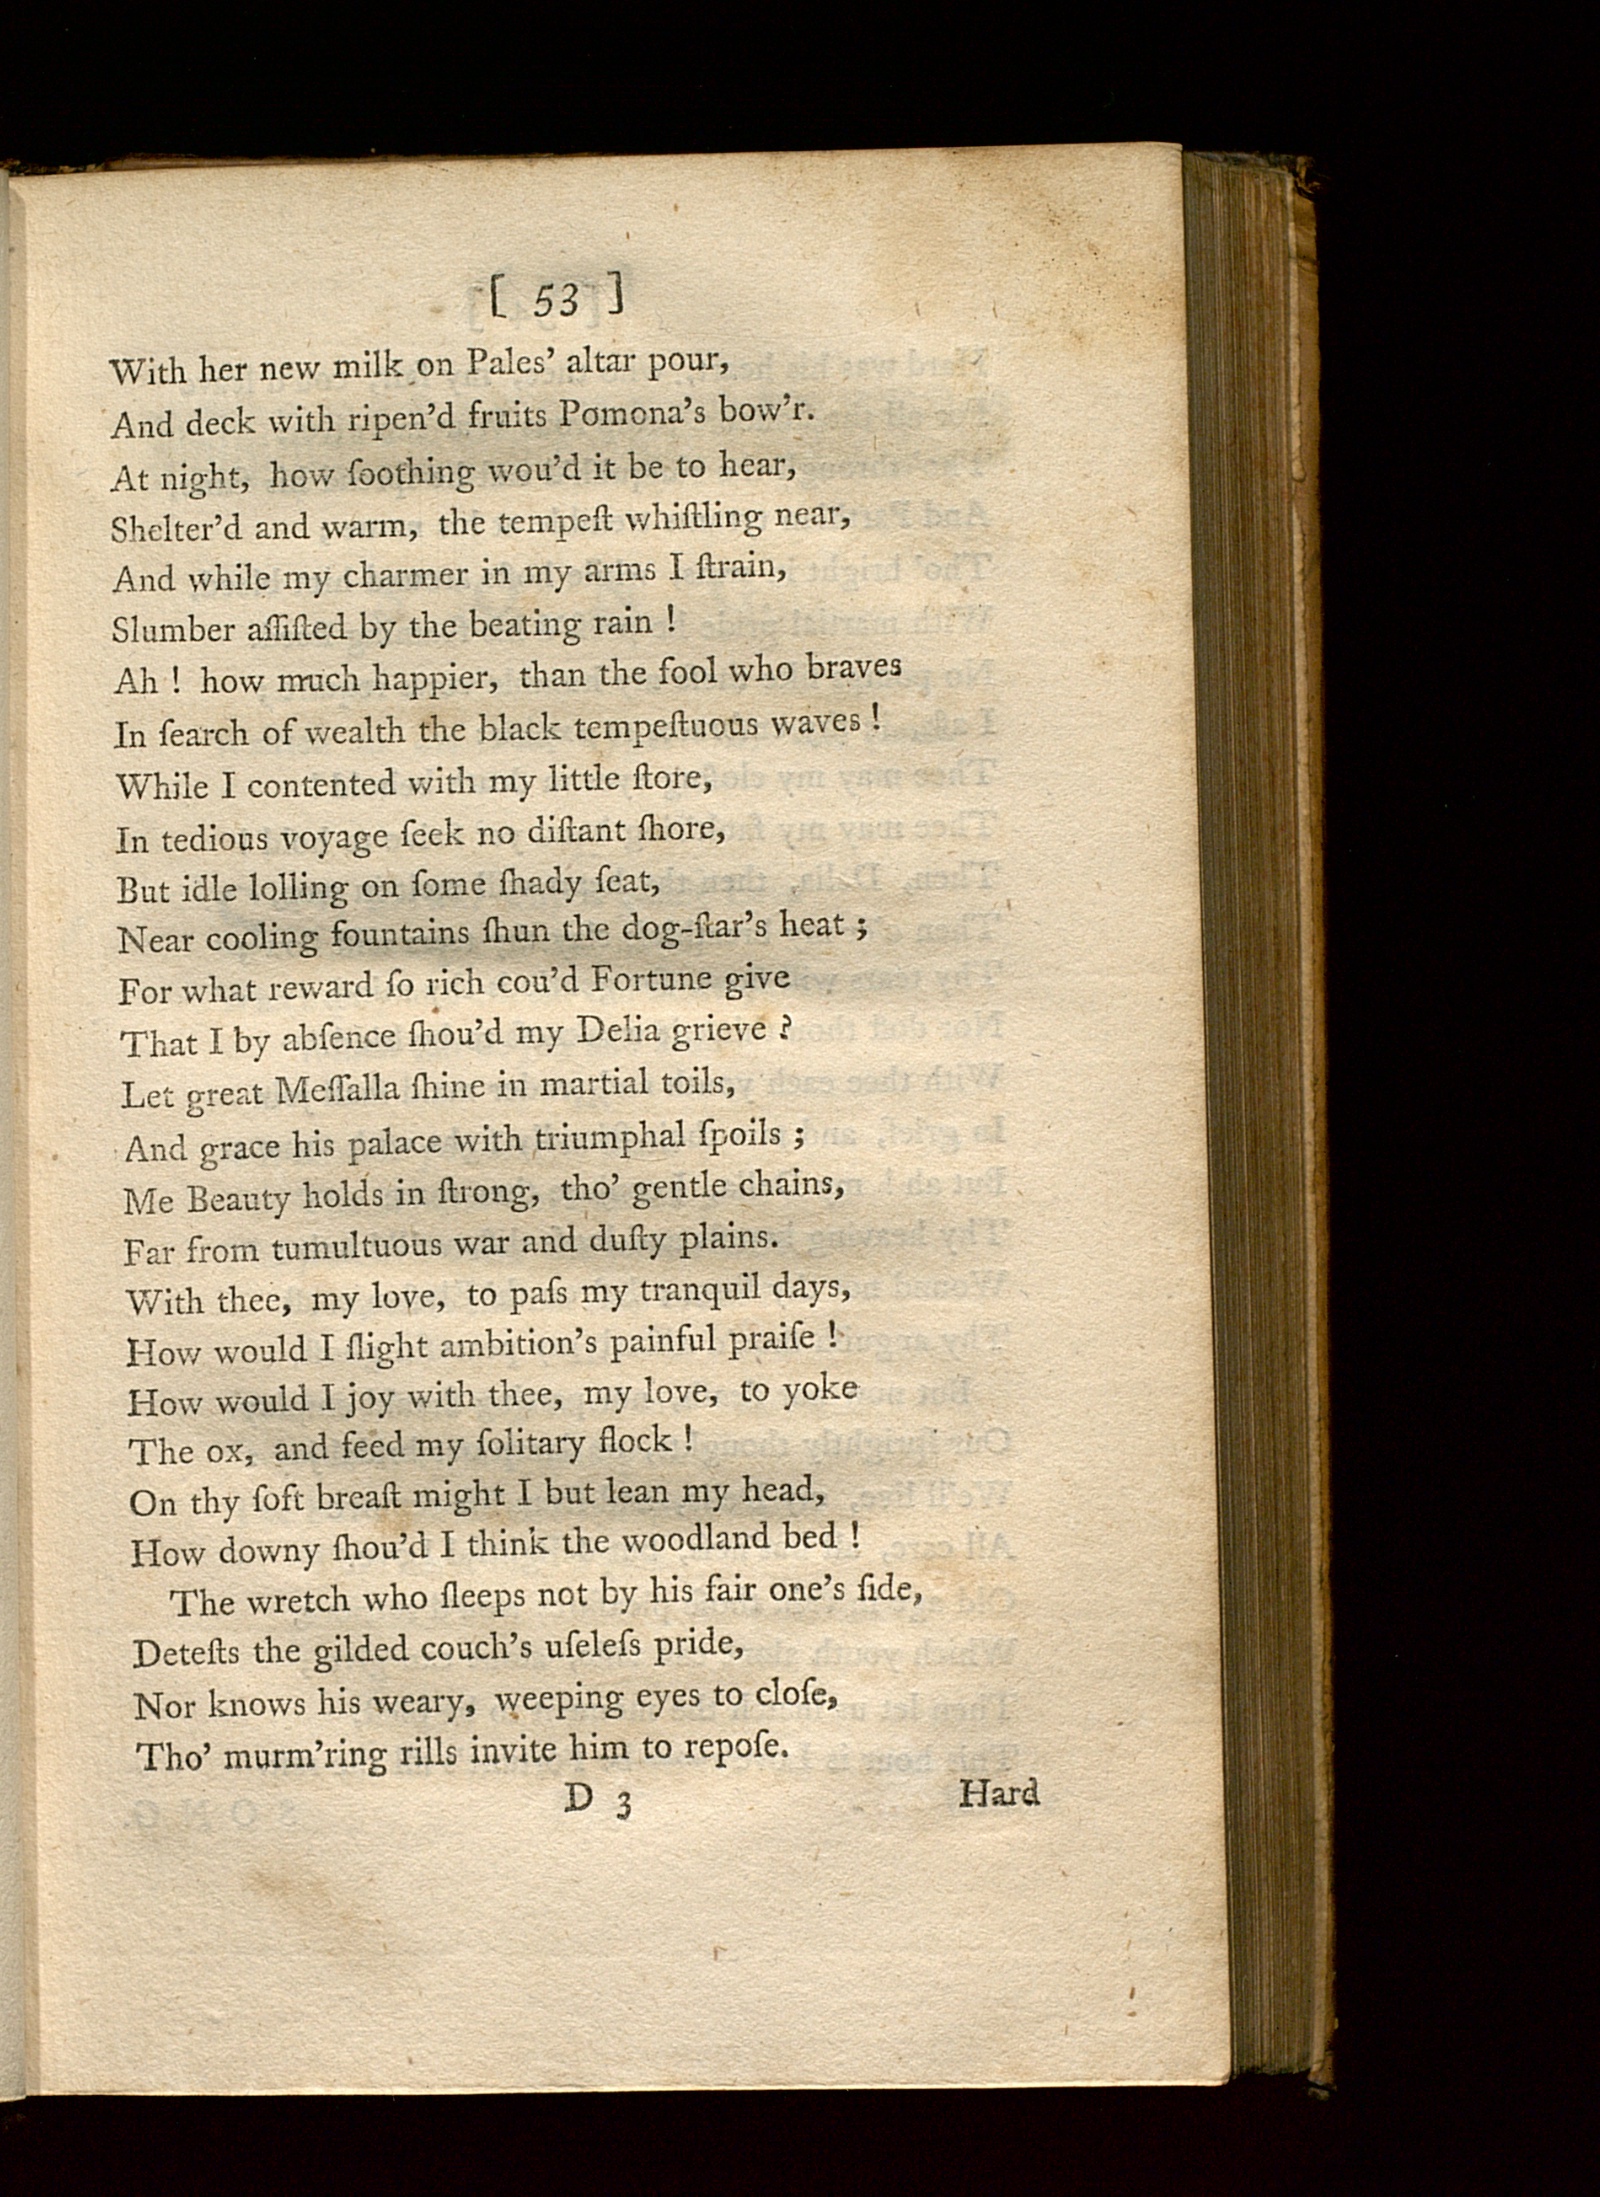 [ 53 ]
With her new milk on Pales' altar pour,
And deck with ripen'd fruits Pomona's bow'r.
At night, how ſoothing wou'd it be to hear,
Shelter'd and warm, the tempeſt whiſtling near,
And while my charmer in my arms I ſtrain,
Slumber aſſiſted by the beating rain !
Ah ! how much happier, than the fool who braves
In ſearch of wealth the black tempeſtuous waves !
While I contented with my little ſtore,
In tedious voyage ſeek no diſtant ſhore,
But idle lolling on ſome ſhady ſeat,
Near cooling fountains ſhun the dog-ſtar's heat ;
For what reward ſo rich cou'd Fortune give
That I by abſence ſhou'd my Delia grieve ?
Let great Meſſalla ſhine in martial toils,
And grace his palace with triumphal ſpoils ;
Me Beauty holds in ſtrong, tho' gentle chains,
Far from tumultuous war and duſty plains.
With thee, my love, to paſs my tranquil days,
How would I ſlight ambition's painful praiſe !
How would I joy with thee, my love, to yoke
The ox, and feed my ſolitary flock !
On thy ſoft breaſt might I but lean my head,
How downy ſhou'd I think the woodland bed !
The wretch who ſleeps not by his fair one's ſide,
Deteſts the gilded couch's uſeleſs pride,
Nor knows his weary, weeping eyes to cloſe,
Tho' murm'ring rills invite him to repoſe.
D 3 Hard